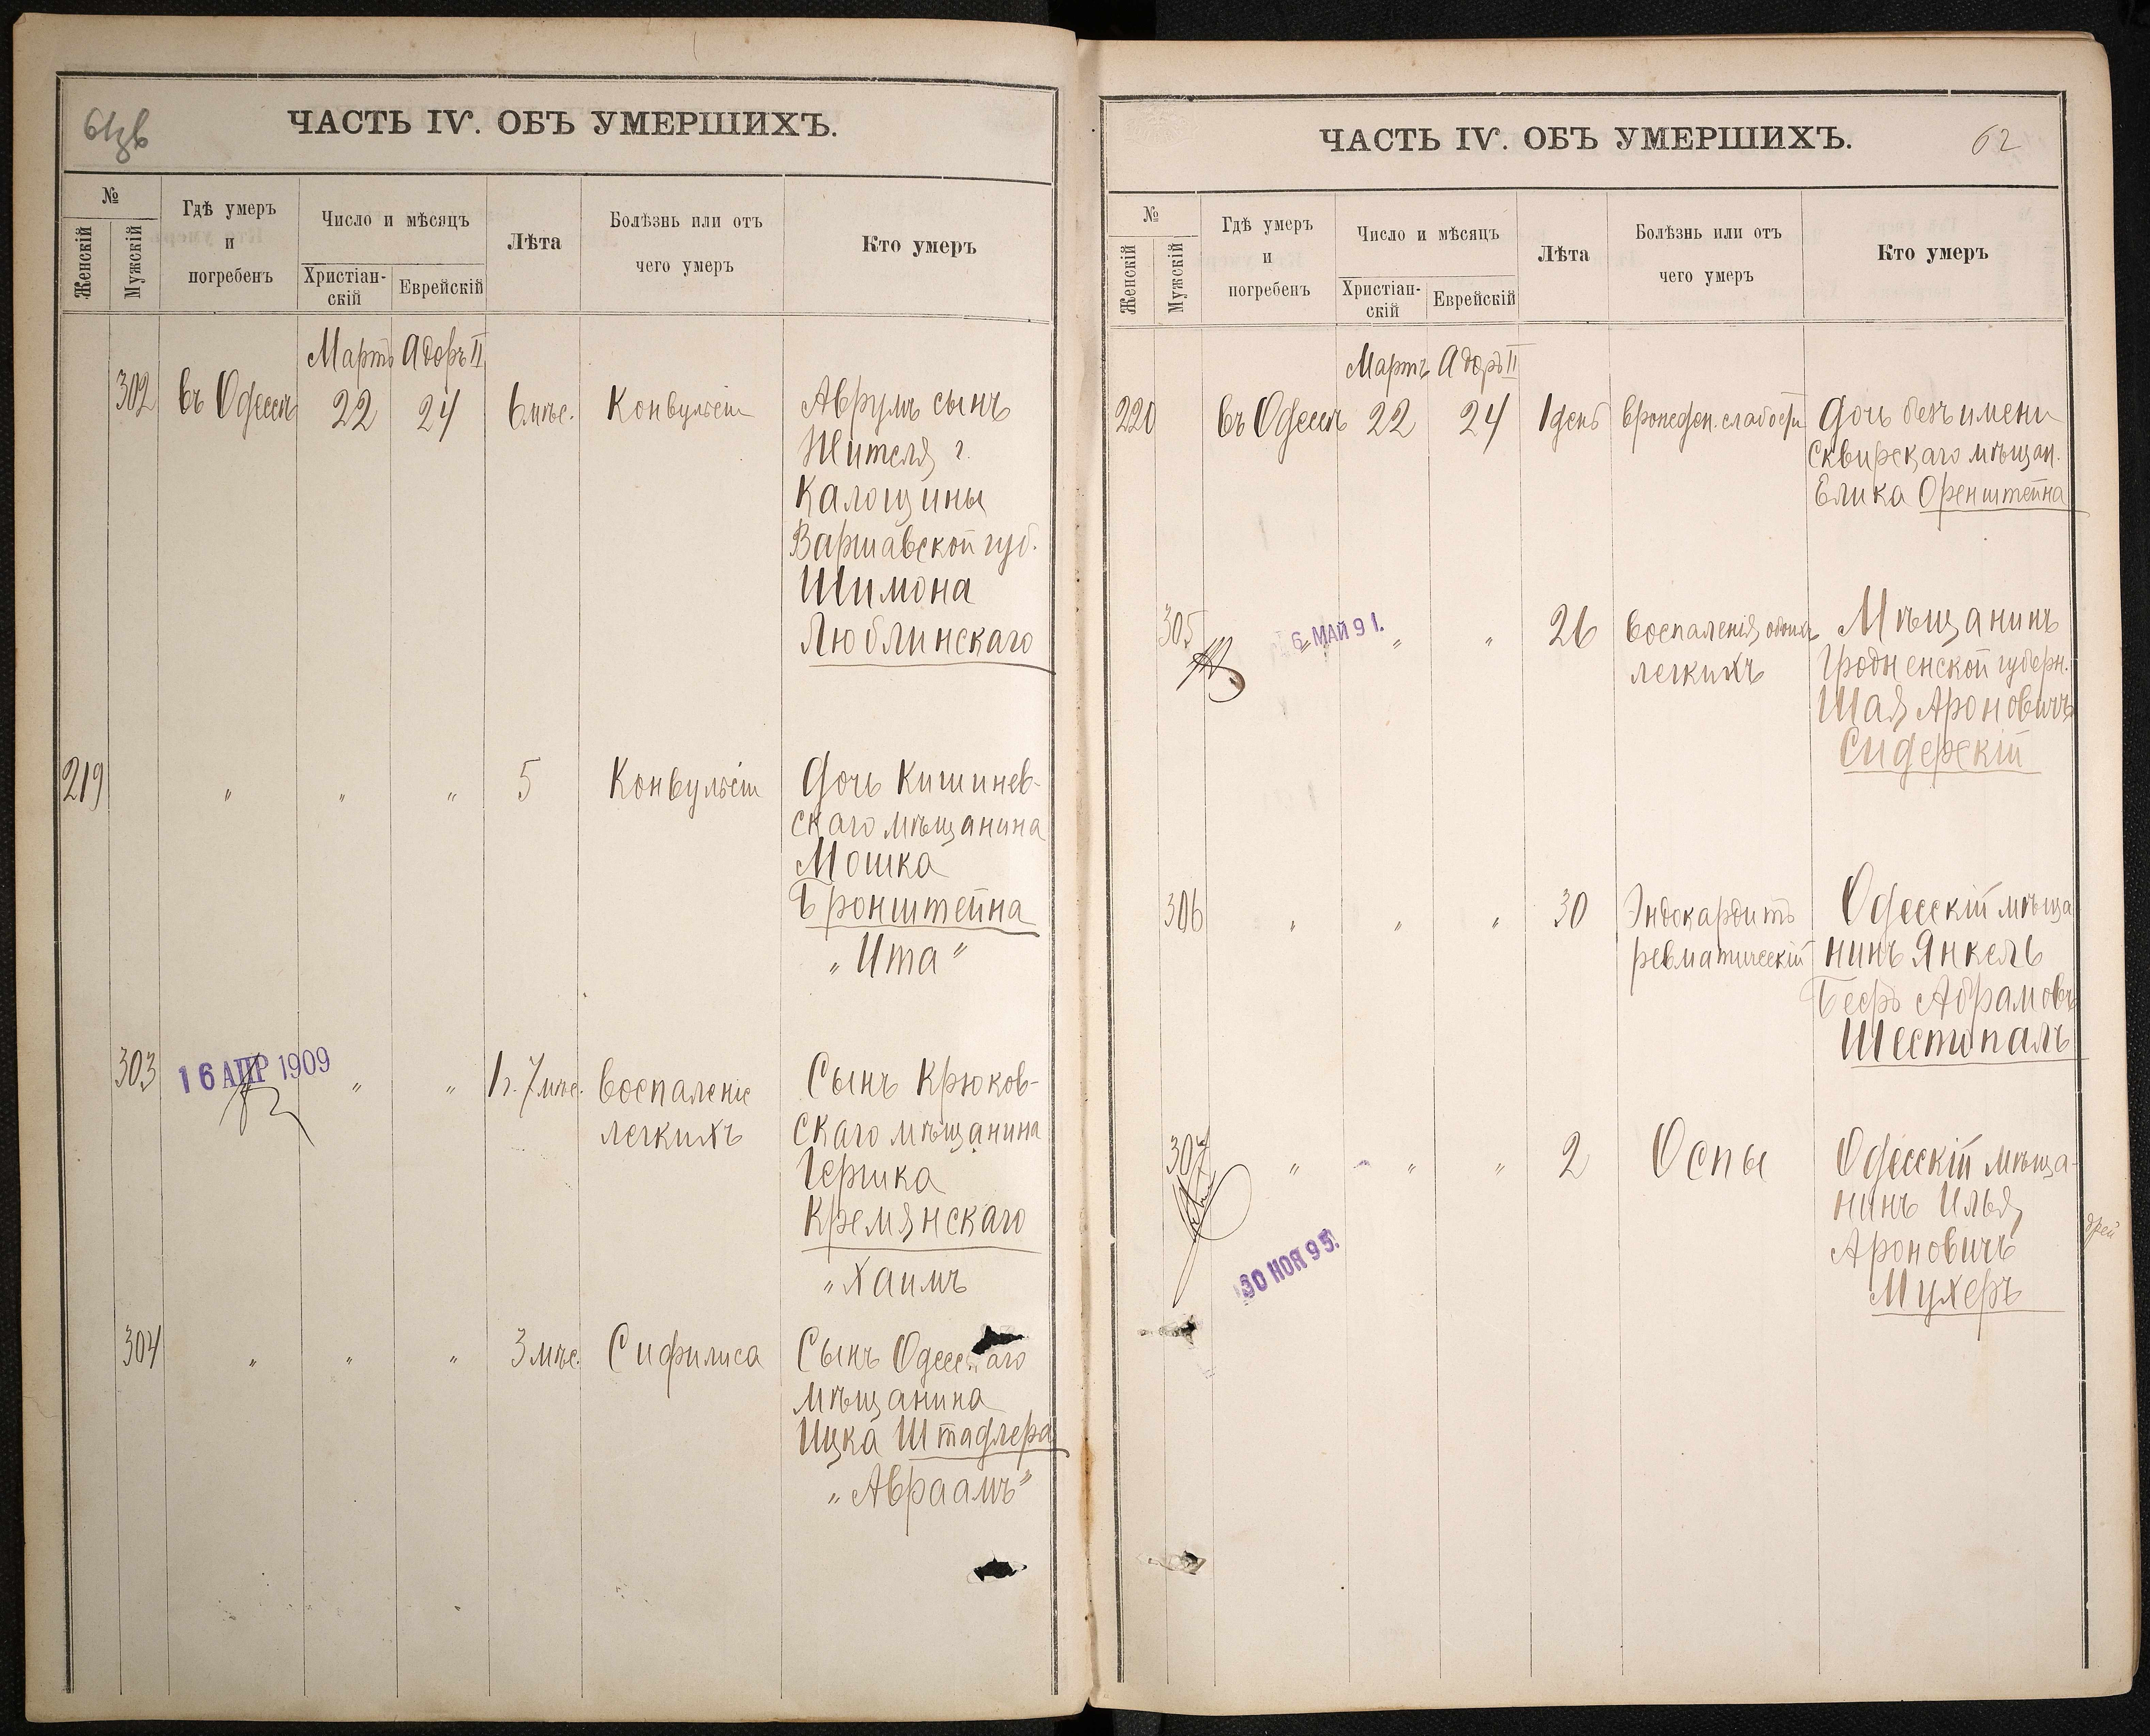 61 об
ЧАСТЬ IV. ОБЪ УМЕРШИХЪ.
№
Женскій
Мужскій
Гдѣ умеръ
и
погребенъ
Число и мѣсяцъ
Христіан-
скій
Еврейскій
Лѣта
Болѣзнь или отъ
чего умеръ
Кто умеръ
Мартъ Адоръ II
302 въ Одессѣ 22 24 6 мѣс. Конвульсіи Аврумъ сынъ
Жителя г.
Калошины
Варшавской губ.
Шимона
Люблинскаго
219 " " " 5 Конвульсіи Дочь Кишинев-
скаго мѣщанина
Мошка
Бронштейна
"Ита"
303 16 АПР 1909 " " 1 г. 7 мѣс. Воспаленіе Сынъ Крюков-
легкихъ скаго мѣщанина
Гершка
Кремянскаго
"Хаимъ
304 " " " 3 мѣс. Сифилиса Сынъ Одесскаго
мѣщанина
Ицка Штадлера
"Авраамъ"
ЧАСТЬ IV. ОБЪ УМЕРШИХЪ.
62
№
Женскій
Мужскій
Гдѣ умеръ
и
погребенъ
Число и мѣсяцъ
Христіан-
скій
Еврейскій
Лѣта
Болѣзнь или отъ
чего умеръ
Кто умеръ
Мартъ Адоръ II
220 въ Одессѣ 22 24 1 день врожден. слабости Дочь безъ имени
Сквирскаго мѣщан.
Елика Оренштейна
305 " 6 МАЙ 91. " " 26 Воспаленія обоихъ Мѣщанинъ
легкихъ Гродненской губерн.
Шая Ароновичъ
Сидерскій
306 " " " 30 Эндокардитъ Одесскій мѣща
ревматическій нинъ Янкель
Беръ Абрамовъ
Шестопалъ
307 " " " 2 Оспы Одесскій мѣща-
нинъ Илья
Ароновичъ
Мухеръ
30 НОЯ 95.